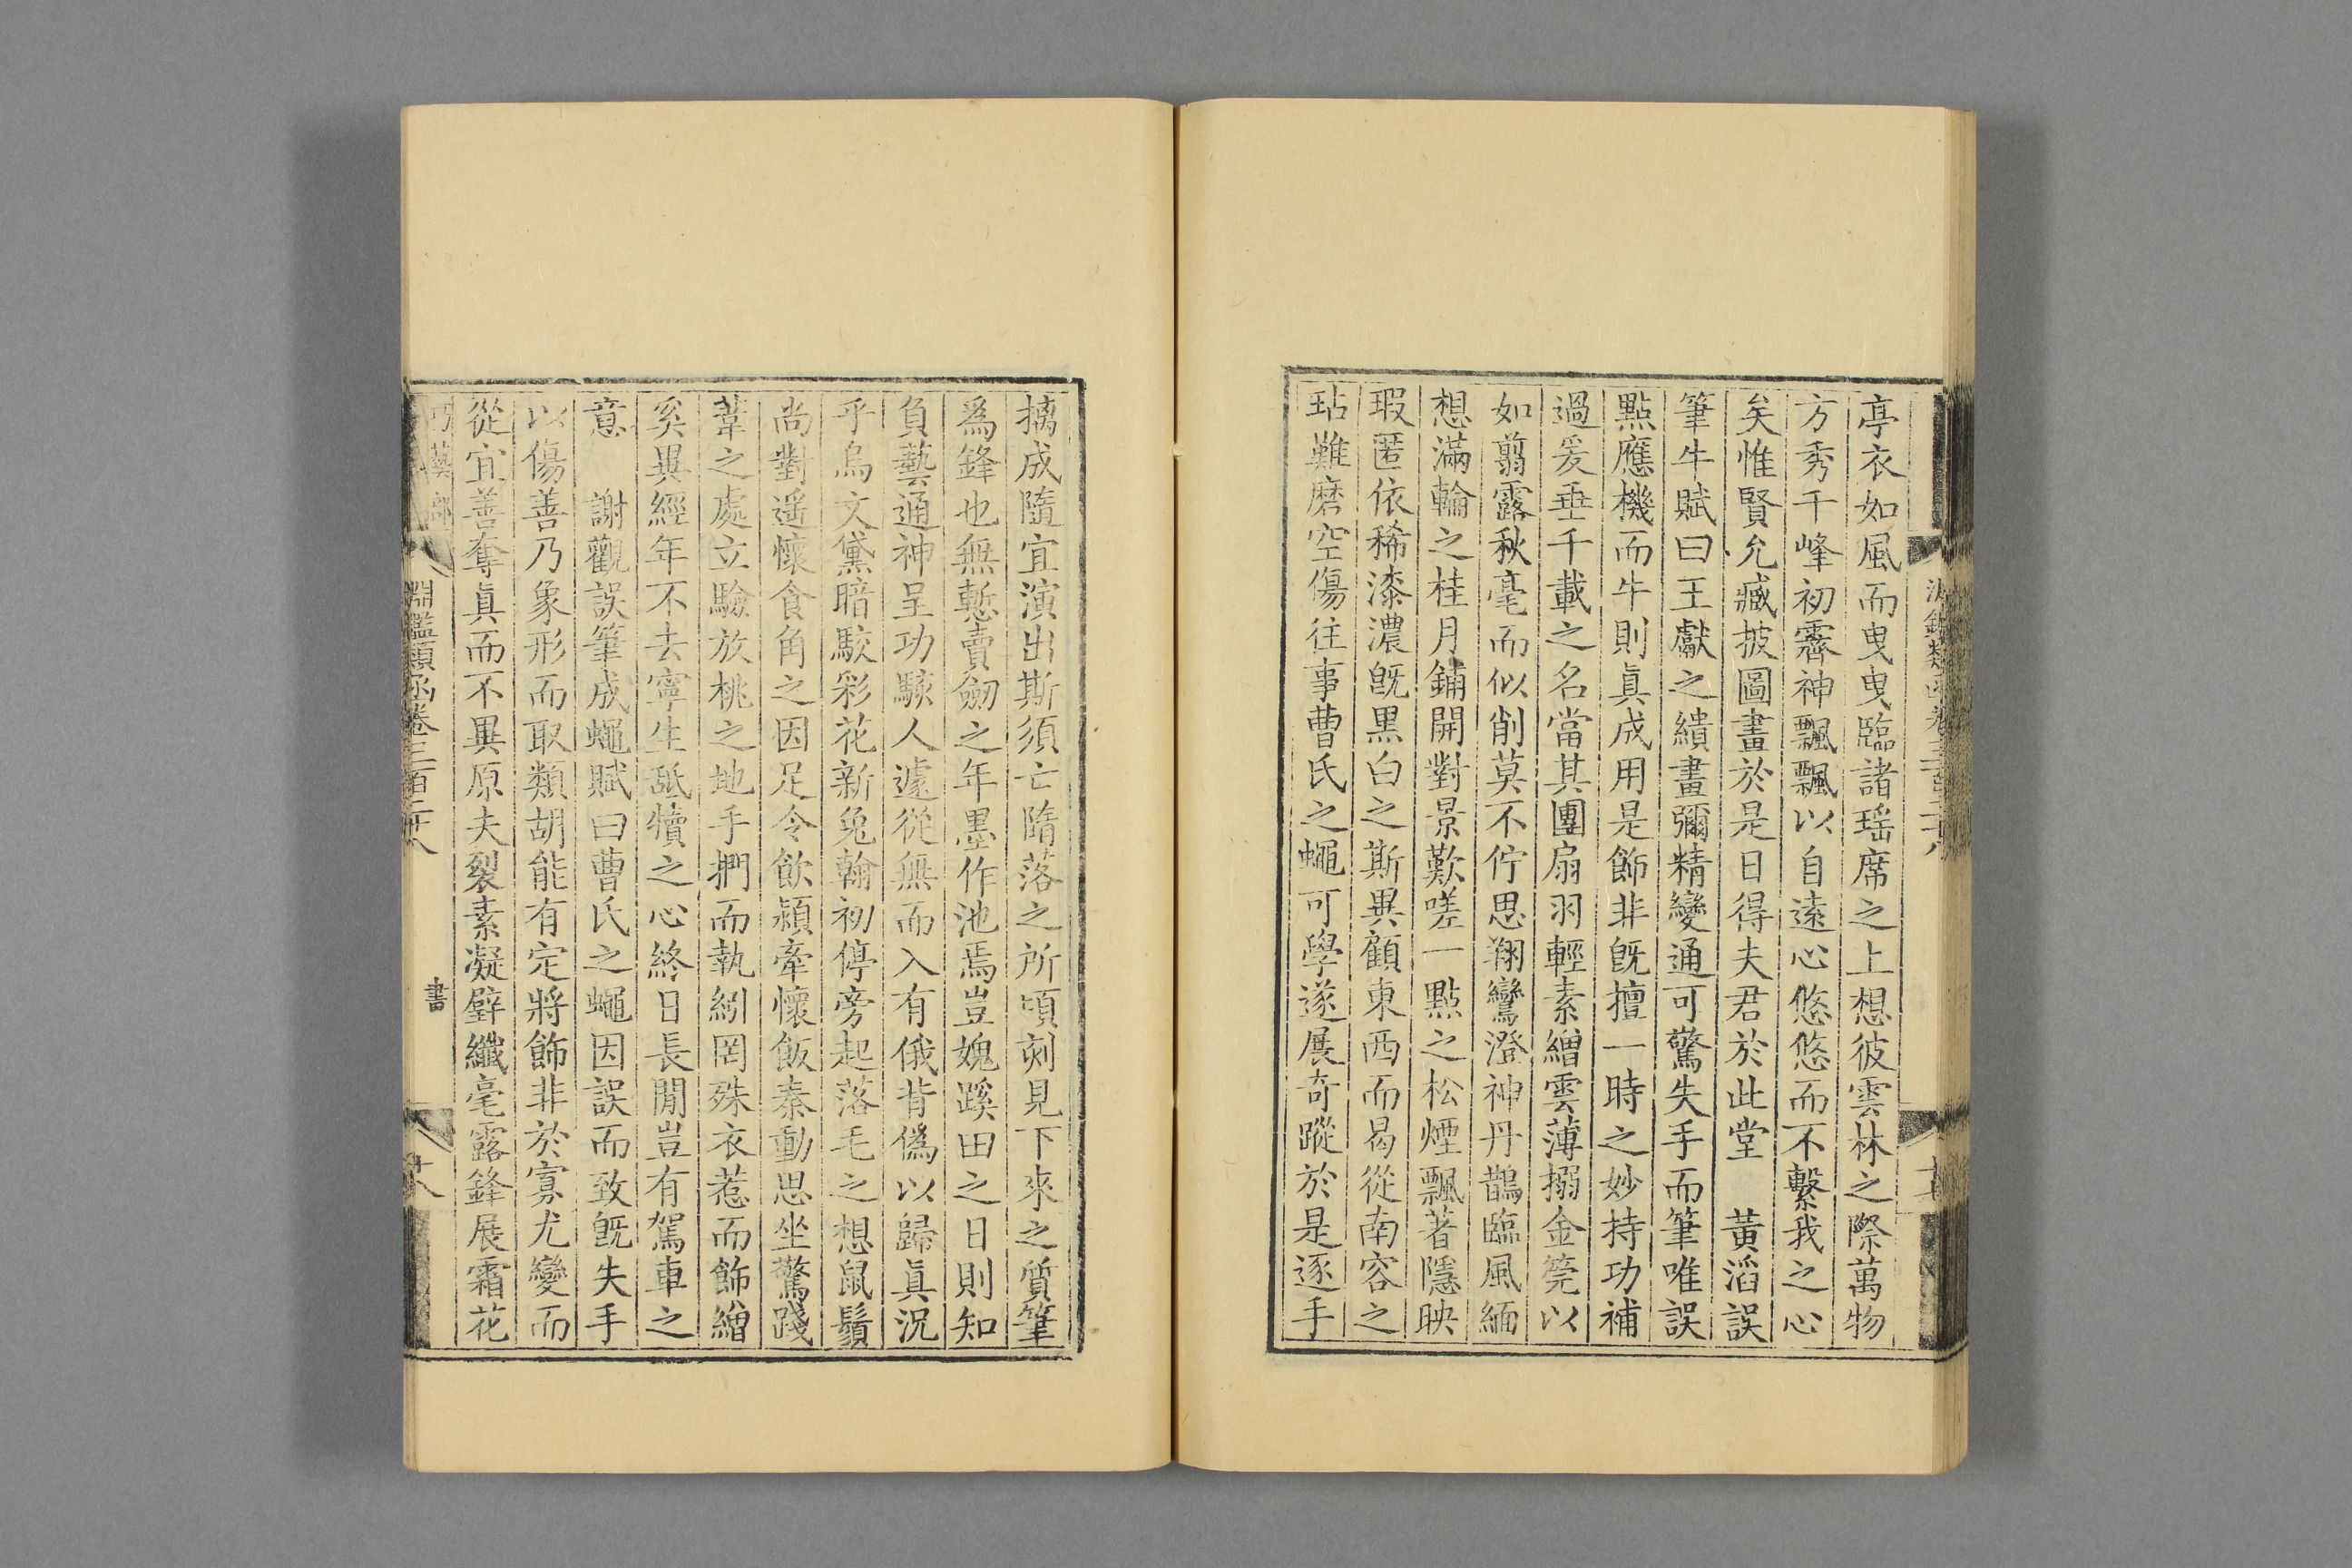 亭衣如風而曳曳臨諸瑶席之上想彼雲林之際萬物
方秀千峰初霽神飄飄以自遠心悠悠而不繫我之心
矣惟賢允臧披圖畫於是日得夫君於此堂　黃滔誤
筆牛賦曰王獻之繢畫彌精變通可驚失手而筆唯誤
點應機而牛則眞成用是飾非旣擅一時之妙持功補
過爰垂千載之名當其團扇羽輕素繒雲薄搦金筦以
如翦露秋毫而似削莫不佇思翔鸞澄神丹鵲臨風緬
想滿輪之桂月鋪開對景歎嗟一點之松煙飄著隱映
瑕匿依稀漆濃旣黑白之斯異顧東西而曷從南容之
玷難磨空傷往事曹氏之蠅可學遂展奇蹤於是逐手
摛成隨宜演出斯須亡隋落之所頃刻見下來之質筆
爲鋒也無慙賣劒之年墨作池焉豈媿蹊田之日則知
負藝通神呈功駭人遽從無而入有俄背僞以歸眞況
乎烏文黛暗駮彩花新兔翰初停旁起落毛之想鼠鬚
尚對遥懷食角之因足令飲潁牽懷飯秦動思坐驚踐
葦之處立驗放桃之地手捫而執紖罔殊衣惹而飾繒
奚異經年不去寧生舐犢之心終日長閒豈有駕車之
意　謝觀誤筆成蠅賦曰曹氏之蠅因誤而致旣失手
以傷善乃象形而取類胡能有定將飾非於寡尤變而
從宜善奪眞而不異原夫裂素凝壁纖毫露鋒展霜花
淵鑑類函卷三百二十八
書